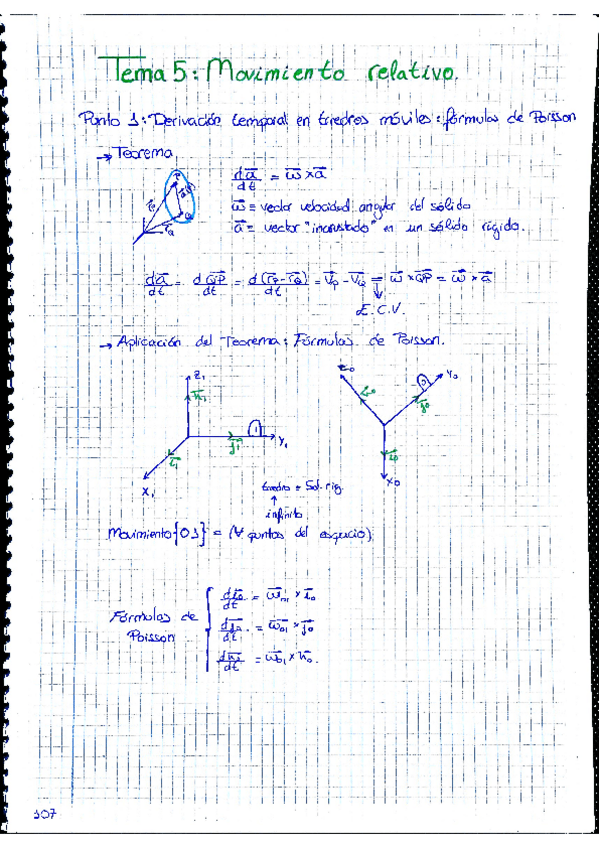 Tema 5: Movimiento relativo.
Punto 1: Derivación temporal en triedros móviles: fórmulas de Poisson
→ Teorema
P
Q
r_P
r_Q
da⃗/dt = ω⃗ × a⃗
ω⃗ = vector velocidad angular del sólido
a⃗ = vector "incrustado" en un sólido rígido.
da⃗/dt = dQP⃗/dt = d(r⃗_P - r⃗_Q)/dt = V⃗_P - V⃗_Q = ω⃗ × QP⃗ = ω⃗ × a⃗
↓
E.C.V.
→ Aplicación del Teorema: Fórmulas de Poisson.
Z₁
k⃗₁
j⃗₁
1
Y₁
i⃗₁
X₁
Z₀
k⃗₀
0
Y₀
j⃗₀
i⃗₀
X₀
triedro ≡ Sol. rig.
↑
infinito
Movimiento {01} = (∀ puntos del espacio)
Fórmulas de Poisson
di⃗₀/dt = ω⃗₀₁ × i⃗₀
dj⃗₀/dt = ω⃗₀₁ × j⃗₀
dk⃗₀/dt = ω⃗₀₁ × k⃗₀.
107